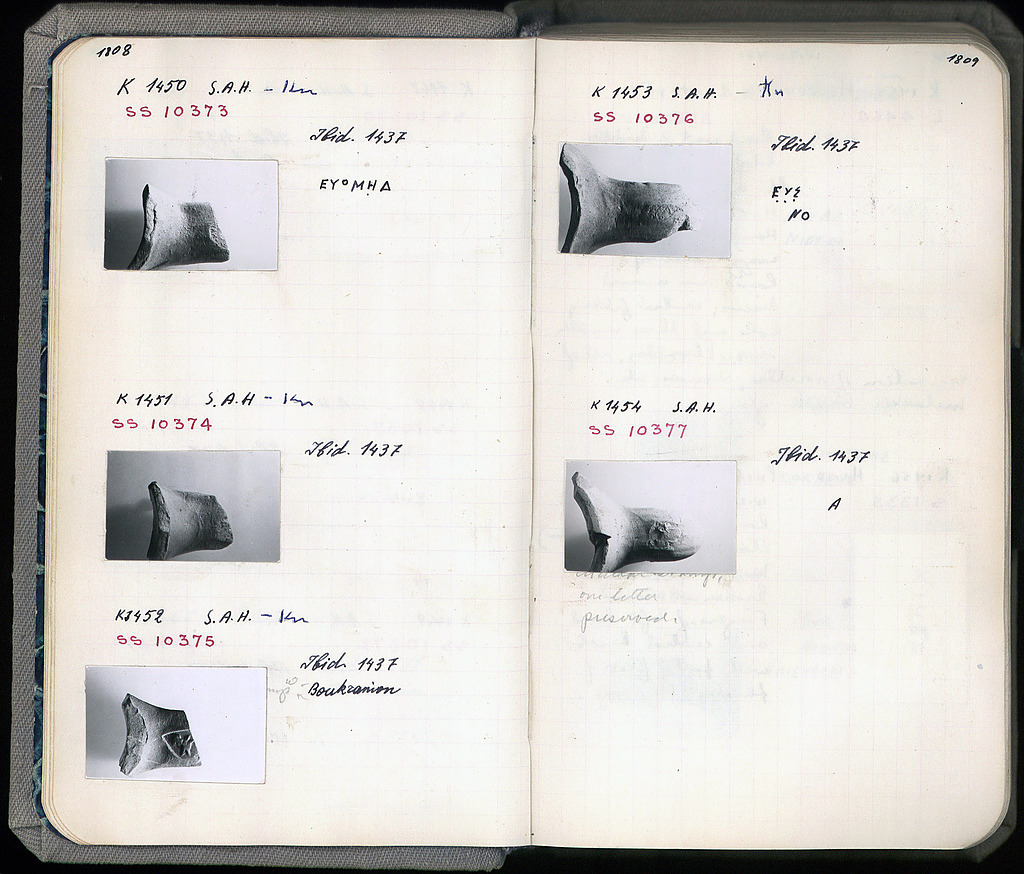 1808
K 1450 S.A.H. - Kn
SS 10373
Ibid. 1437
ΕΥΟΜΗΔ
K 1451 S.A.H - Kn
SS 10374
Ibid. 1437
K 1452 S.A.H. - Kn
SS 10375
Ibid. 1437
Boukranion
1809
K 1453 S.A.H. - Kn
SS 10376
Ibid. 1437
ΕΥΣ
ΝΟ
K 1454 S.A.H.
SS 10377
Ibid. 1437
Α
one letter
preserved.